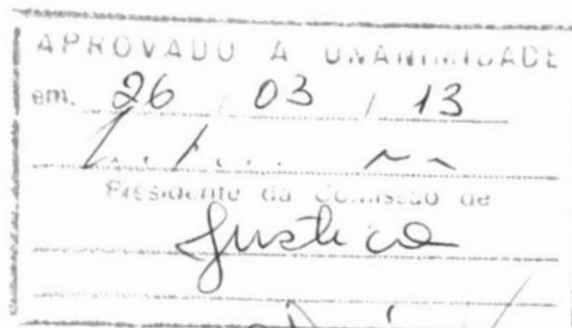 APROVADO A UNANIMIDADE
em. 26 / 03 / 13
Presidente da Comissão de
Justiça